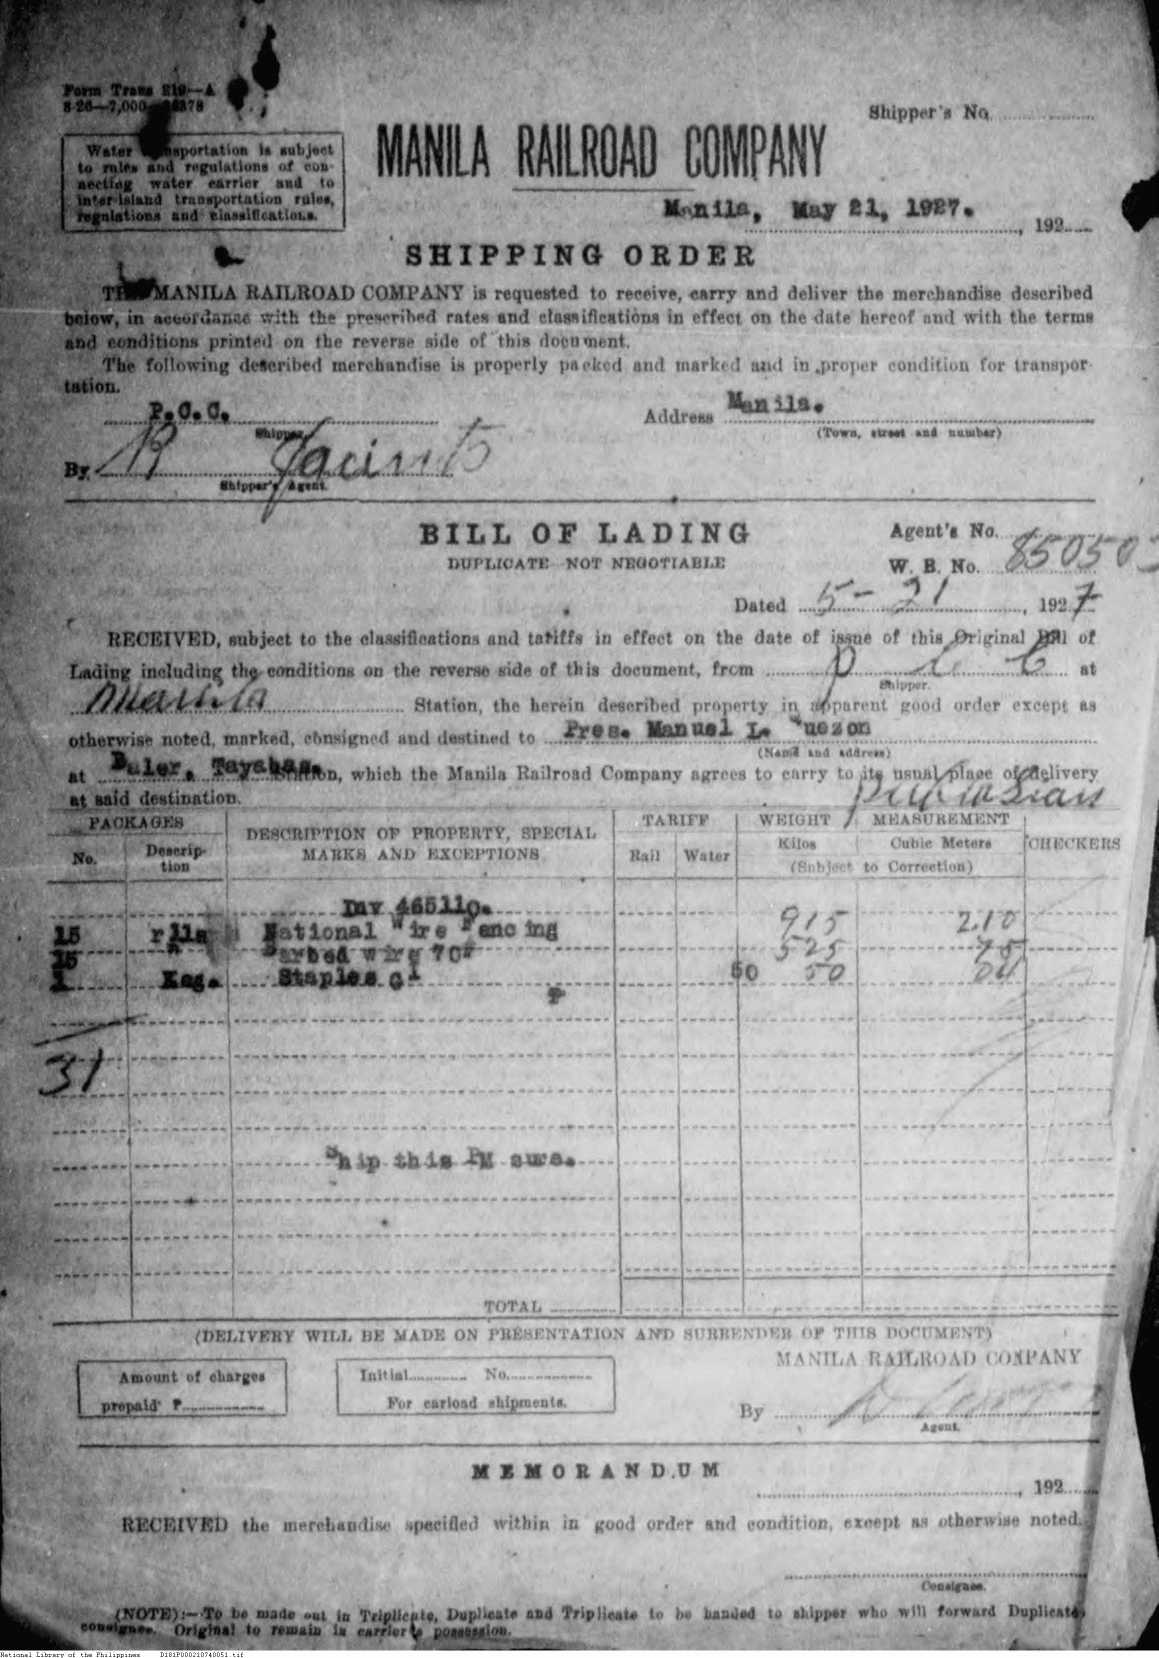 Form Trans 219—A
8-26—7,000
Shipper's No.
Water transportation is subject
to rules and regulations of con-
necting water carrier and to
inter-island transportation rules,
regulations and classifications.
MANILA RAILROAD COMPANY
Manila, May 21, 1927.
, 192
SHIPPING ORDER
THE MANILA RAILROAD COMPANY is requested to receive, carry and deliver the merchandise described
below, in accordance with the prescribed rates and classifications in effect on the date hereof and with the terms
and conditions printed on the reverse side of this document.
The following described merchandise is properly packed and marked and in proper condition for transpor-
tation.
P.C.C.
Shipper
Address Manila.
(Town, street and number)
By R Jacinto
Shipper's Agent.
BILL OF LADING
DUPLICATE NOT NEGOTIABLE
Agent's No.
W. B. No. 85050
Dated 5-21, 1927
RECEIVED, subject to the classifications and tariffs in effect on the date of issue of this Original Bill of
Lading including the conditions on the reverse side of this document, from P C C at
Shipper.
Manila Station, the herein described property in apparent good order except as
otherwise noted, marked, consigned and destined to Pres. Manuel L. Quezon
(Name and address)
at Baler, Tayabas. Station, which the Manila Railroad Company agrees to carry to its usual place of delivery
at said destination.
PACKAGES
No.
Descrip-
tion
DESCRIPTION OF PROPERTY, SPECIAL
MARKS AND EXCEPTIONS
TARIFF
Rail Water
WEIGHT
Kilos
MEASUREMENT
Cubic Meters
(Subject to Correction)
CHECKERS
Inv 465110.
15 rlls National Wire Fencing 915 2.10
15 " Barbed wire 70# 525 75
1 Keg. Staples 50 50 04
31
Ship this PM sure.
TOTAL
(DELIVERY WILL BE MADE ON PRESENTATION AND SURRENDER OF THIS DOCUMENT)
MANILA RAILROAD COMPANY
Amount of charges
prepaid ₱
Initial No.
For carload shipments.
By
Agent.
MEMORANDUM
, 192
RECEIVED the merchandise specified within in good order and condition, except as otherwise noted.
Consignee.
(NOTE):—To be made out in Triplicate, Duplicate and Triplicate to be handed to shipper who will forward Duplicate
consignee. Original to remain in carrier's possession.
National Library of the Philippines D181P000210740051.tif